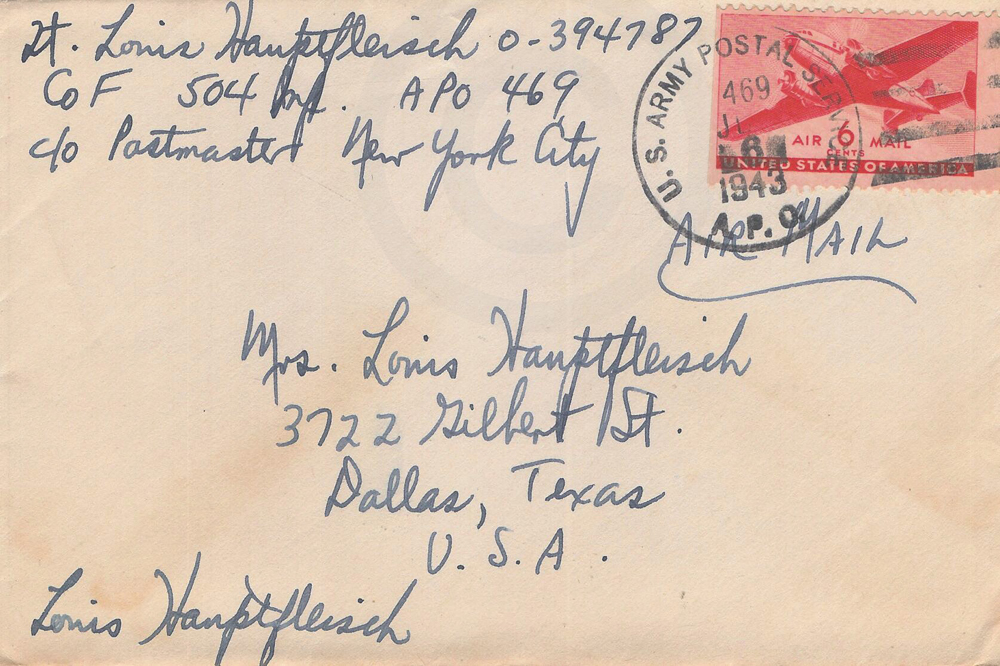 Lt. Louis Hauptfleisch O-394787
Co F 504 Inf. APO 469
c/o Postmaster New York City
U.S. ARMY POSTAL SERVICE
469
6
1943
A.P.O.
AIR 6 MAIL
CENTS
UNITED STATES OF AMERICA
AIR MAIL
Mrs. Louis Hauptfleisch
3722 Gilbert St.
Dallas, Texas
U.S.A.
Louis Hauptfleisch